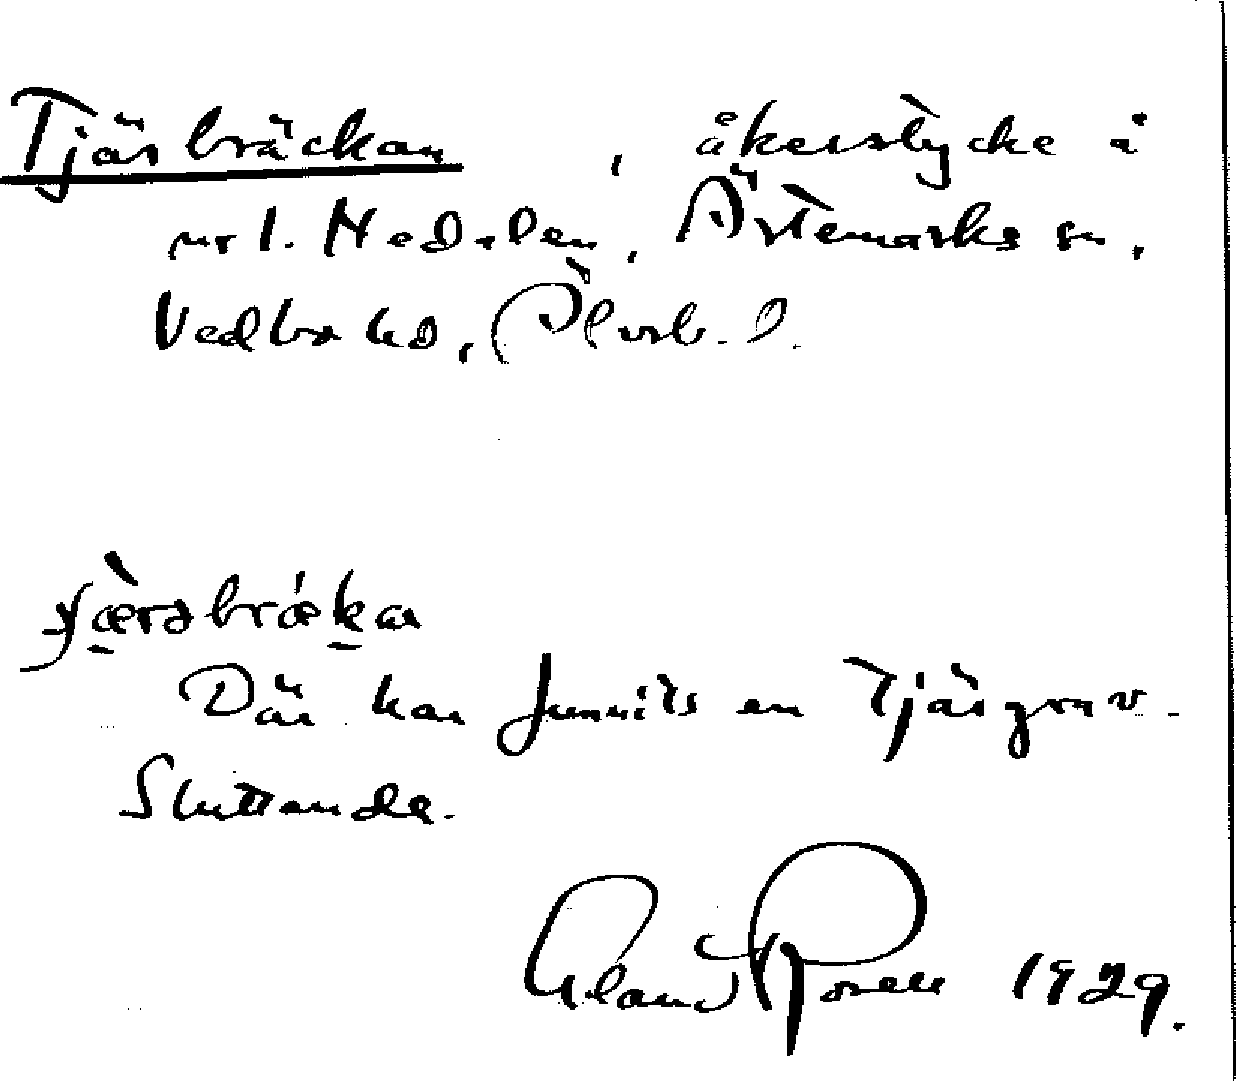 Tjärbräckan, åkerstycke å
nr 1. Nedalen, Ärtemarks sn,
Vedbo hd, Älvsb. l.
Där har funnits en tjärgrav.
Sluttande.
Rosell 1929.